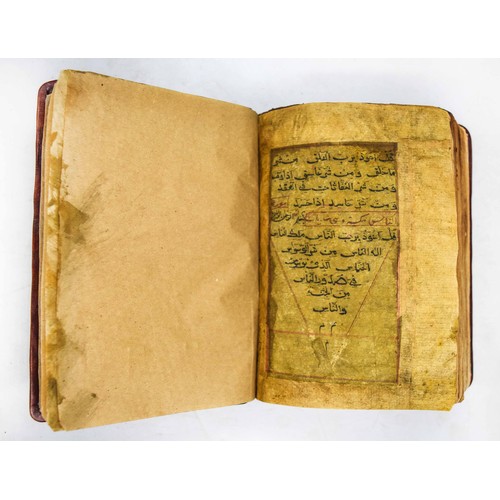 قل اعوذ برب الفلق من شر
ما خلق و من شر غاسق اذا وقب
و من شر النفاثات في العقد
و من شر حاسد اذا حسد
الناس
قل اعوذ برب الناس ملك الناس
اله الناس من شر الوسواس
الخناس الذي يوسوس
في صدور الناس
من الجنة
والناس
م م
م